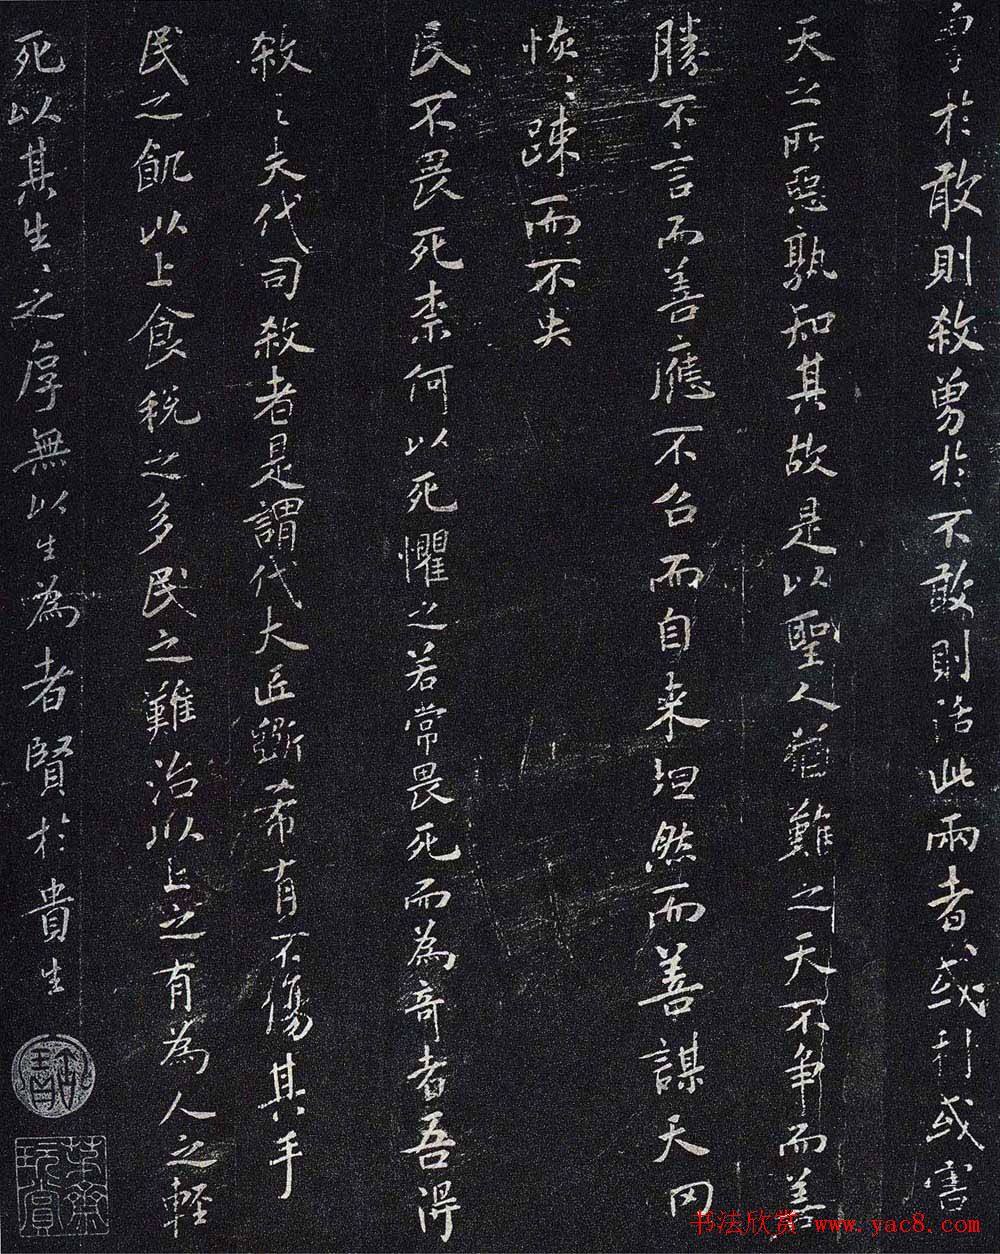 勇於敢則殺勇於不敢則活此兩者或利或害
天之所惡孰知其故是以聖人猶難之天不爭而善
勝不言而善應不召而自来坦然而善謀天罔
恢〻踈而不失
民不畏死柰何以死懼之若常畏死而為奇者吾得
殺〻夫代司殺者是謂代大匠斲希有不傷其手
民之飢以上食稅之多民之難治以上之有為人之輕
死以其生〻之厚無以生為者賢於貴生
玩賞
书法欣赏 www.yac8.com